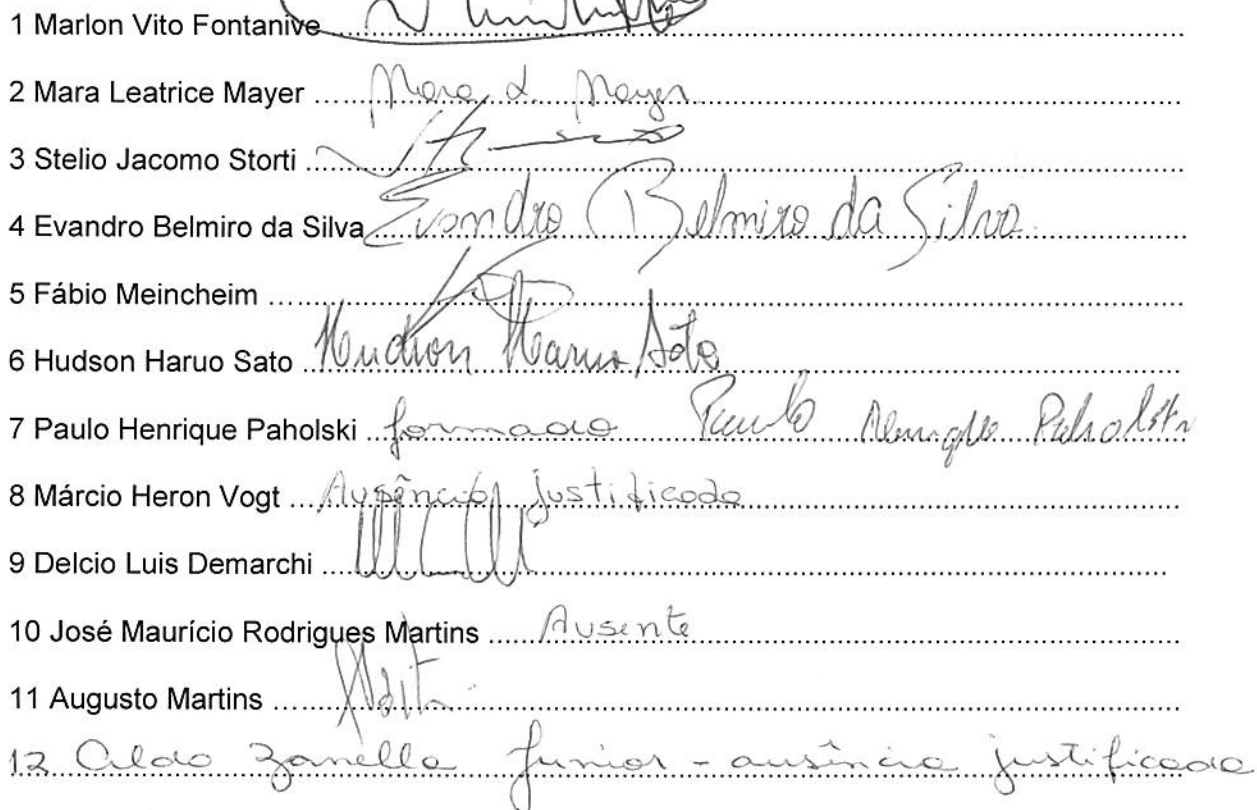 1 Marlon Vito Fontanive
2 Mara Leatrice Mayer ...... Mara L. Mayer
3 Stelio Jacomo Storti
4 Evandro Belmiro da Silva Evandro Belmiro da Silva
5 Fábio Meincheim
6 Hudson Haruo Sato Hudson Haruo Sato
7 Paulo Henrique Paholski formado Paulo Henrique Paholski
8 Márcio Heron Vogt Ausência justificada
9 Delcio Luis Demarchi
10 José Maurício Rodrigues Martins Ausente
11 Augusto Martins
12 Aldo Zanella Junior - ausência justificada